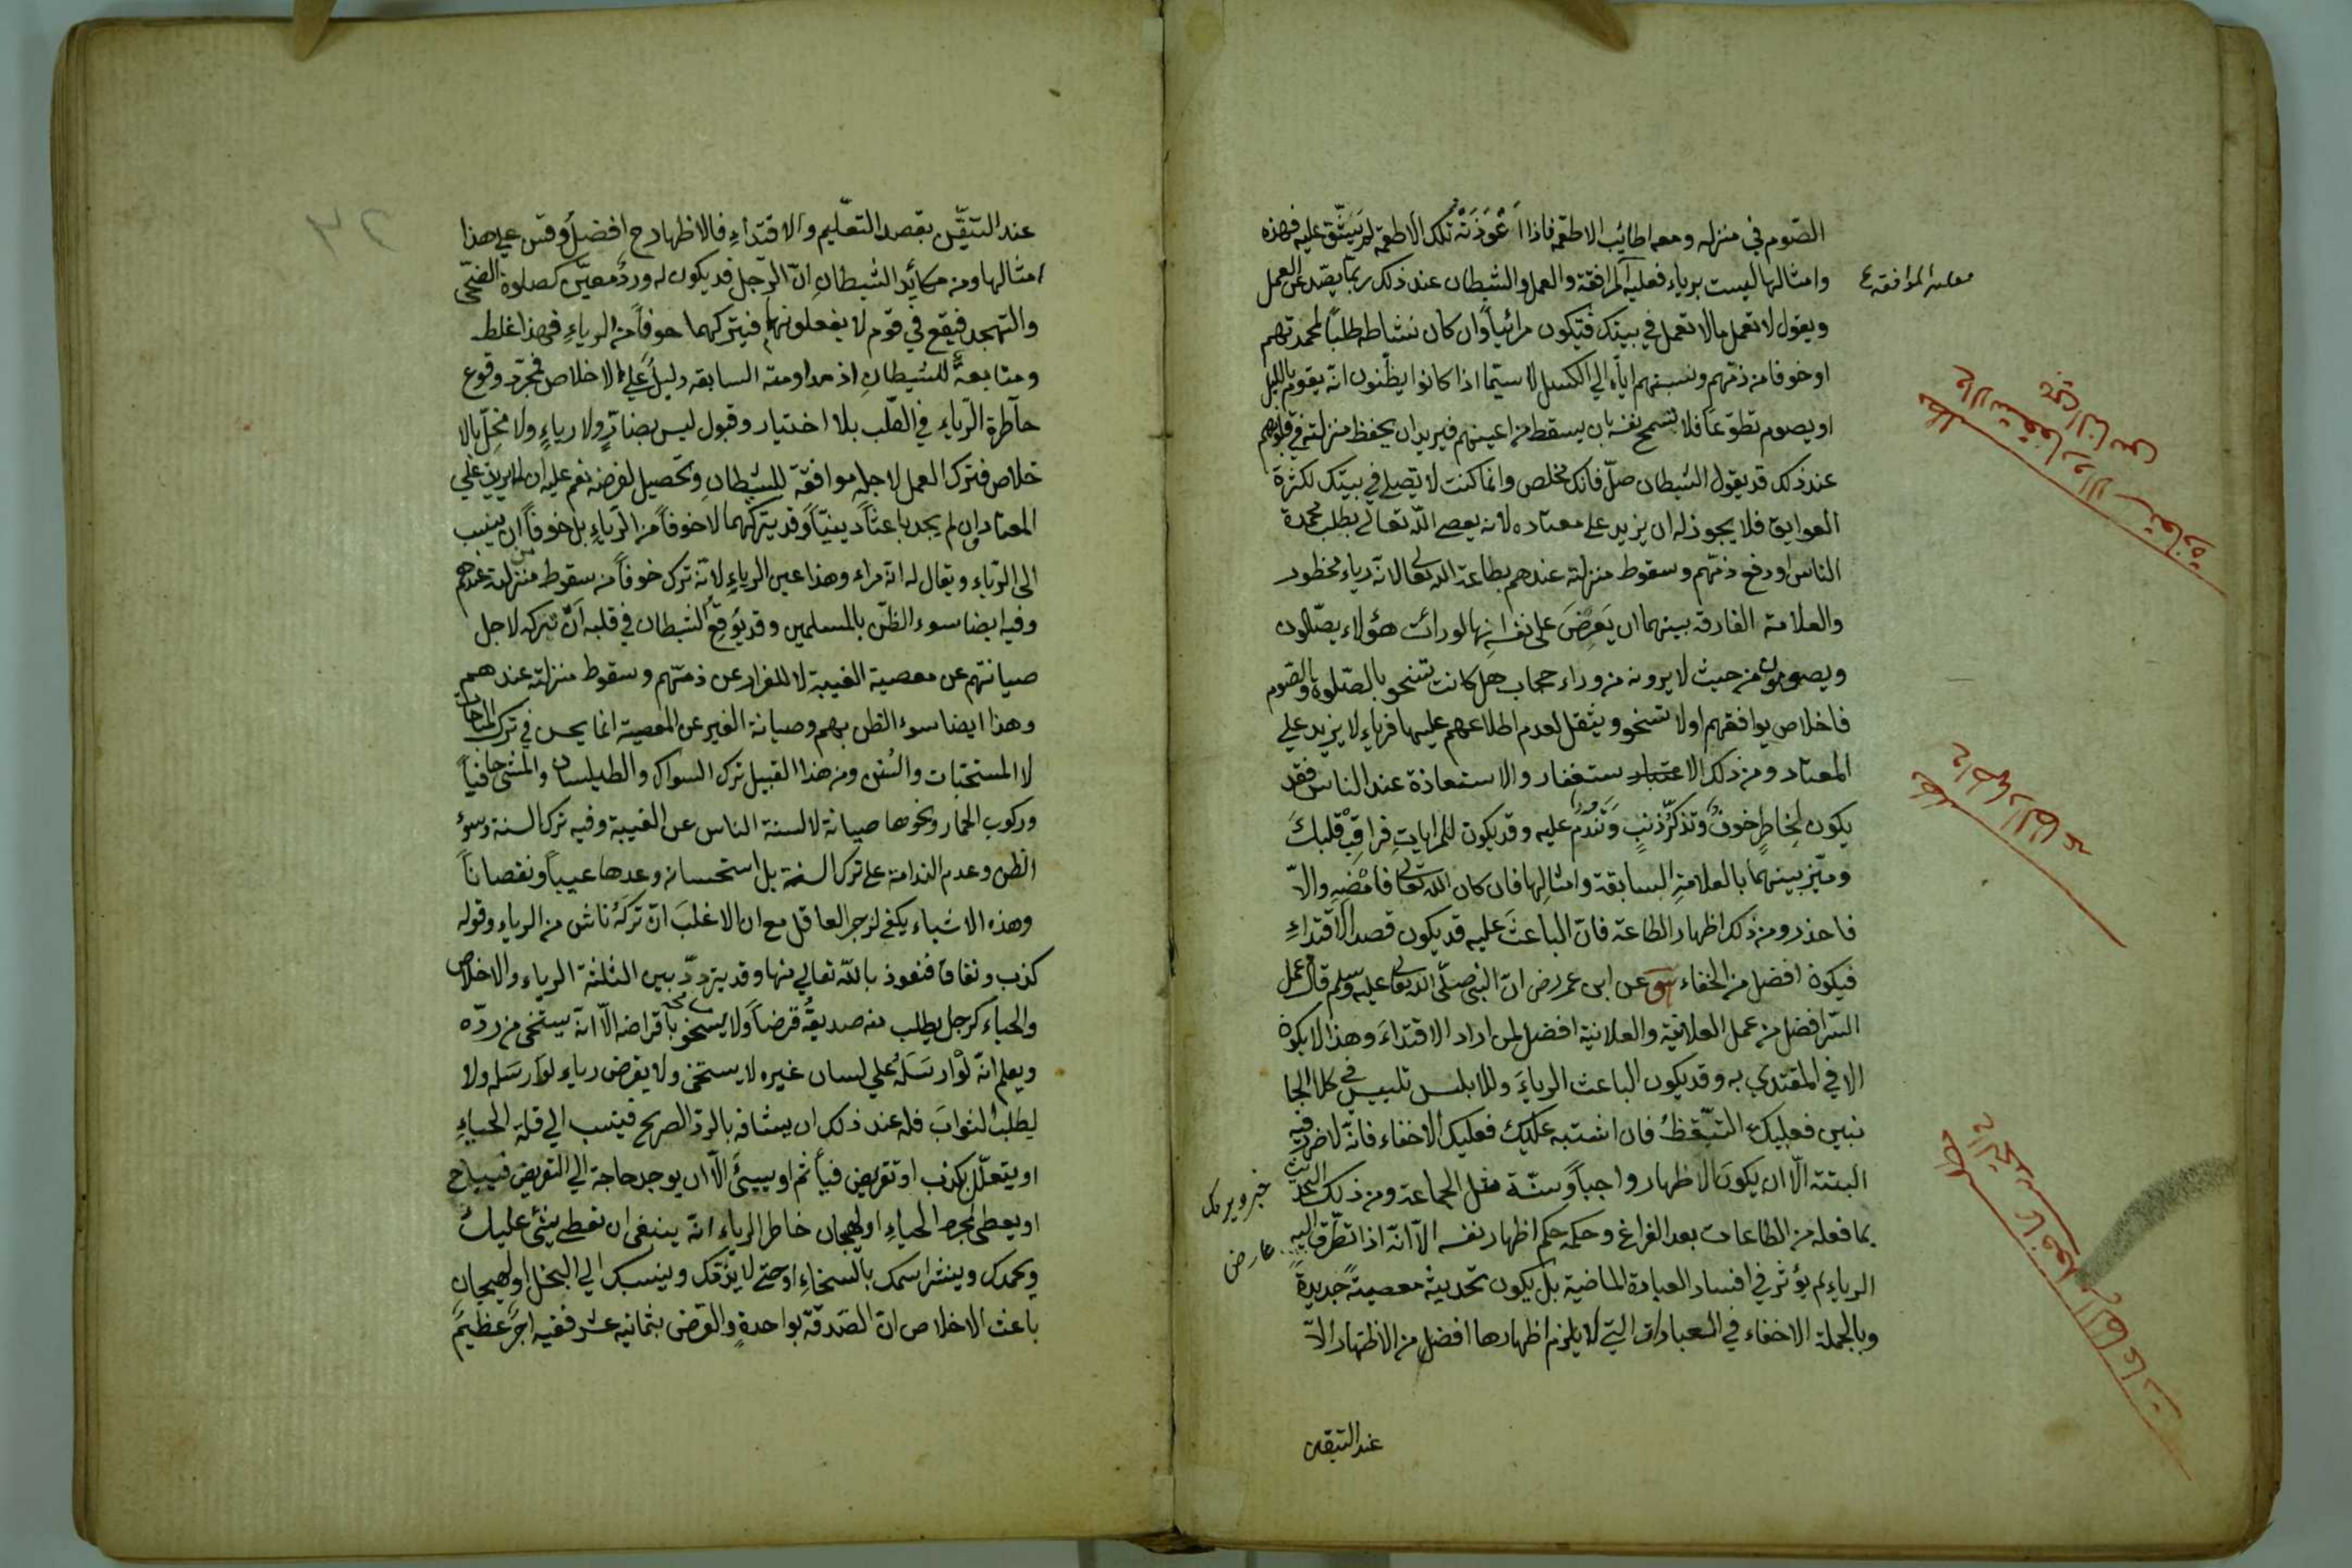 الصّوم في منزله ومعه اطائب الاطعمة فاذا اَعْوَزَتْهُ تلك الاطعمة لم يَشُقّ عليه فهذه
وامثالها ليست برياء فعليه الموافقة والعمل والشيطان عند ذلك ربّما يصّد عن العمل
ويقول لا تعمل مالا تعمل في بيتك فتكون مرائياً وان كان نشاطه طلباً لمحمدتهم
او خوفا من ذمّهم ونسبتهم ايّاه الي الكسل لا سيّما اذا كانوا يظنّون انّه يقوم بالليل
او يصوم تطوّعاً فلا تسمح نفسه بان يسقط من اعينهم فيريد ان يحفظ منزلته في قلوبهم
عند ذلك قد يقول الشيطان صلّ فانّك مخلص وانما كنت لا تصلي في بيتك لكثرة
العوايق فلا يجوز له ان يزيد على معتاده لانه يعصي الله تعالى بطلب محمدة
الناس او دفع ذمّهم وسقوط منزلته عندهم بطاعة الله تعالى لانّه رياء محظور
والعلامة الفارقة بينهما ان يَعرِضَ على نفسه انها لو رأت هؤلاء يصلّون
ويصومون من حيث لا يرونه من وراء حجاب هل كانت تسخو بالصّلوة والصّوم
فاخلاص يوافقهم او لا تسخو ويثقل لعدم اطلاعهم عليها فرياء لا يزيد علي
المعتاد ومن ذلك الاعتبار ستغفار والاستعاذة عند الناس فقد
يكون لخاطرِ خوفٍ وتذكّرِ ذنبٍ وَتَنَدُّمٍ عليه وقد يكون للمراياتِ فراقِبْ قلبكَ
ومّيز بينهما بالعلامةِ السابقة وامثالِها فان كان لله تعالى فامْضِهِ والّا
فاحذر ومن ذلك اظهار الطاعة فانّ الباعثَ عليه قد يكون قصد الاقتداءِ
فيكون افضل من الخفاء عن ابن عمر رض انّ النبي صلّى الله تعالى عليه وسلم قال عمل
السّر افضل من عمل العلانية والعلانية افضل لمن اراد الاقتداءَ وهذا لا يكون
الا في المقتدي به وقد يكون الباعث الرياءَ وللابليس تلبيس في كلا الجا
نبين فعليك التيّقظُ فان اشتبه عليك فعليك الاخفاء فانّه لا ضرر فيه
البتة الّا ان يكون الاظهار واجباً وسنّة مثل الجماعة ومن ذلك التحديث
بما فعله من الطاعات بعد الفراغ وحكمه حكم اظهار نفسه الّا انّه اذا تطّرق اليه
الرياء لم يؤثّر في افساد العبادة الماضية بل يكون تحديثه معصيةً جديدةً
وبالجملة الاخفاء في العبادات التي لا يلزم اظهارها افضل من الاظهار الّا
عند التيقّن
خبر ويرمك
عارض
عند التيقّن بقصد التعّليم والاقتداءِ فالاظهار ح افضل وقس علي هذا
امثالها ومن مكائد الشيطانِ انّ الرّجل قد يكون له وردٌ معيّن كصلوة الضّحى
والتهجد فيقع في قوم لا يفعلونهما فيتركهما خوفاً من الرياءِ فهذا غلط
ومتابعةٌ للشيطانِ اذ مداومته السابقة دليلٌ على الاخلاص فمجّرد وقوع
خاطرة الرّياءِ في القلب بلا اختيار وقبول ليس بضارٍّ ولا رياءٍ ولا مخلّ بالا
خلاص فترك العمل لاجله موافقة للشيطانِ وتحصيل لغرضه نعم عليه ان لا يزيد علي
المعتاد ان لم يجد باعثاً دينيّاً وقد يتركهما لا خوفاً من الرّياءِ بل خوفاً ان ينسب
الى الرّياء ويقال له انه مراء وهذا عين الرياءِ لانّه ترك خوفاً من سقوط منزلته عندهم
وفيه ايضا سوء الظنّ بالمسلمين وقد يُوقِعُ الشيطان في قلبه انّ تركه لاجل
صيانتهم عن معصية الغيبة لا للفرار عن ذمّهم وسقوط منزلته عندهم
وهذا ايضا سوء الظن بهم وصيانة الغير عن المعصية انما يحسن في ترك المباحات
لا المستحبّات والسُنن ومن هذا القبيل ترك السواك والطيلسان والمشي حافياً
وركوب الحمار ونحوها صيانة لالسنة الناس عن الغيبة وفيه ترك السنة وسوءُ
الظن وعدم الندامة على ترك السنّة بل استحسانه وعدها عيباً ونقصاناً
وهذه الاشياء يكفي لزجر العاقل مع ان الاغلبَ انّ تركَهُ ناش من الرياءِ وقوله
كذب ونفاق فنعوذ بالله تعالى منها وقد يتردّد بين الثلثة الرياء والاخلاص
والحياء كرجل يطلب منه صديقُه قرضاً ولا يسخو باقراضه الّا انّه يستحي من ردّه
ويعلم انّه لَوْ ارسَلَهُ علي لسان غيره لا يستحي ولا يقرض رياء لو ارسَله ولا
لطلب الثوابَ فله عند ذلك ان يشافه بالردّ الصريح فينسب الي قلة الحياءِ
او يتعلّل بكذب او تعريض فيأثم او يسيئَ الّا ان يوجد حاجة الي التعريض فيباح
او يعطى لمجرد الحياءِ او لهيجان خاطر الرياءِ انّه ينبغى ان تعطى يثنى عليك
ويحمدك وينشر اسمك بالسخاءِ او حتى لا يذّمك وينسبك الي البخل او لهيجانِ
باعث الاخلاص انّ الصّدقة بواحدةٍ والقرض بثمانية عشر ففيه اجرٌ عظيمٌ